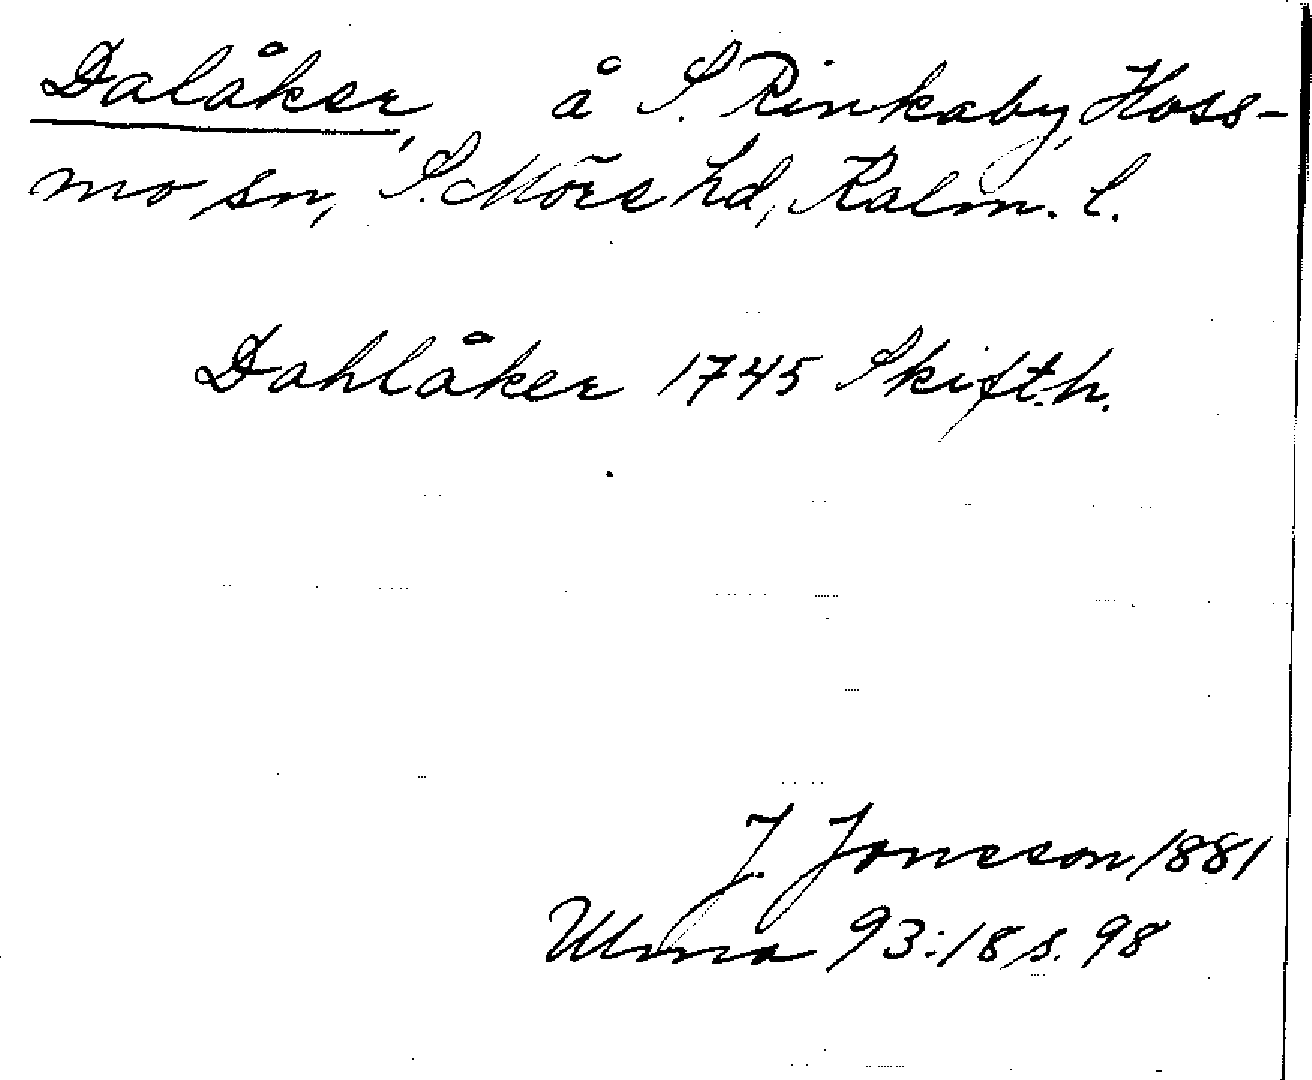 Dalåker, å S. Rinkaby, Hoss-
mo sn, S. Möre hd, Kalm. l.
Dahlåker 1745 Skifth.
J. Jonsson 1881
Ulma 93:18 s. 98